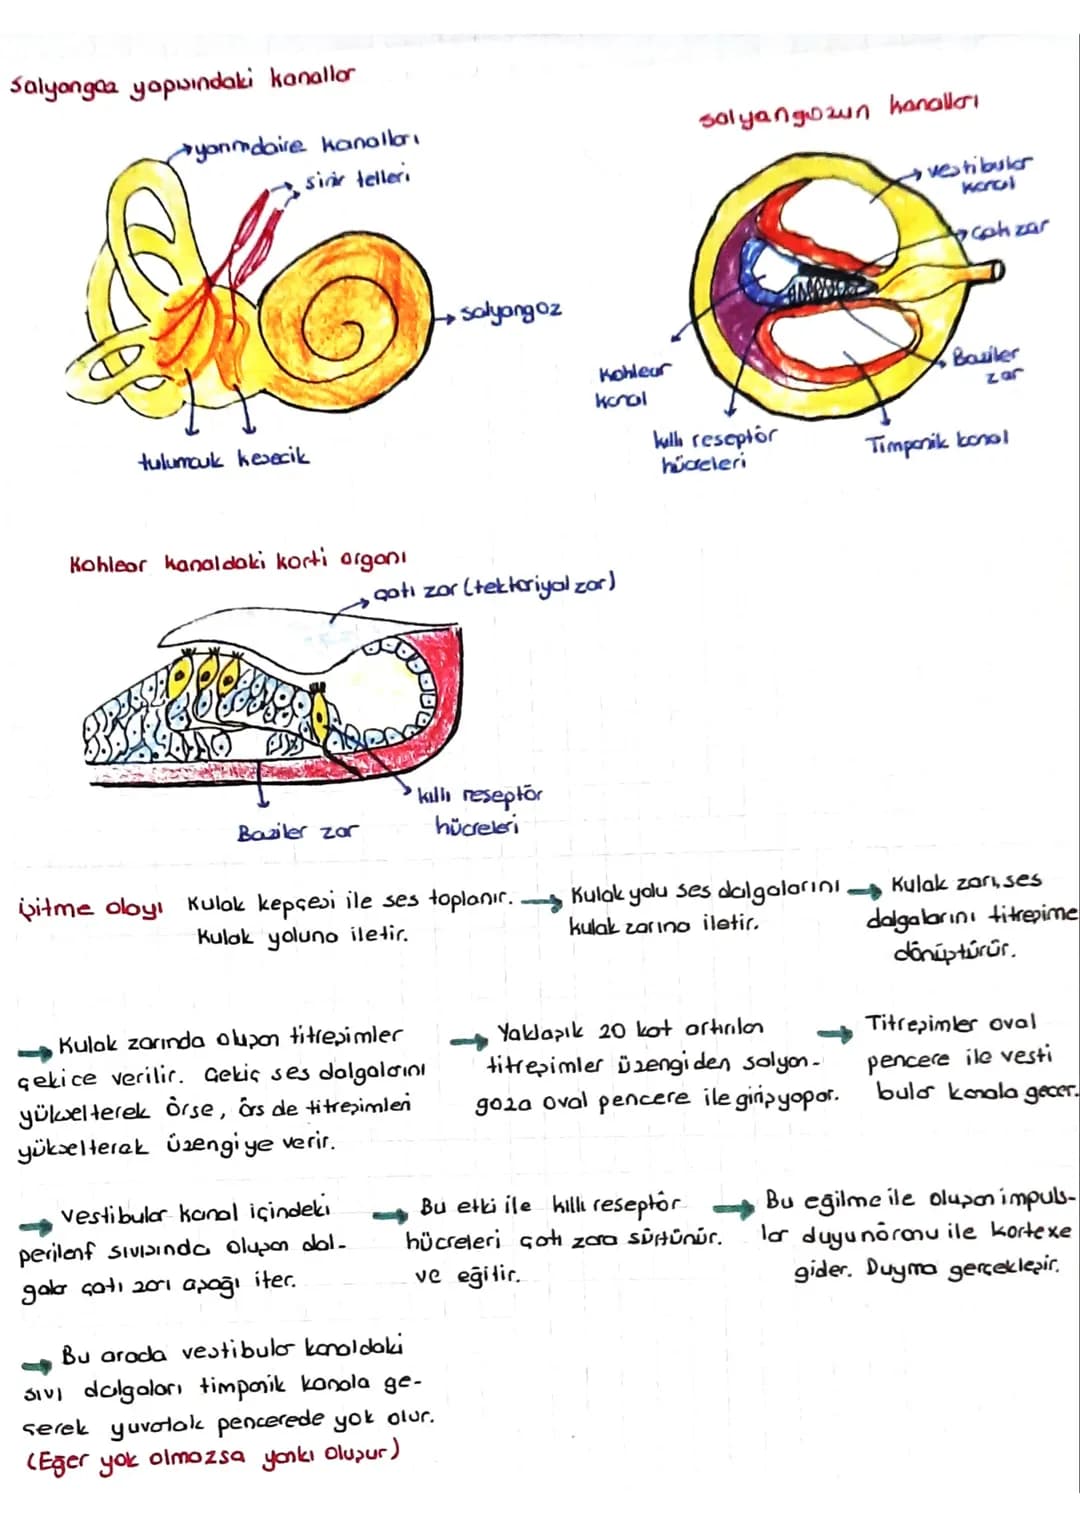 Salyangoz yapısındaki kanallar
yarımdaire kanalları
sinir telleri
salyangoz
tulumcuk kesecik
salyangozun kanalları
vestibular
kanal
çatı zar
Baziler
zar
Kohlear
kanal
kıllı reseptör
hücreleri
Timpanik kanal
Kohlear kanaldaki korti organı
çatı zar (tektoriyal zar)
kıllı reseptör
hücreleri
Baziler zar
işitme olayı Kulak kepçesi ile ses toplanır.
Kulak yoluna iletir.
Kulak yolu ses dalgalarını
kulak zarına iletir.
Kulak zarı, ses
dalgalarını titreşime
dönüştürür.
Kulak zarında oluşan titreşimler
çekice verilir. Çekiç ses dalgalarını
yükselterek örse, örs de titreşimleri
yükselterek üzengiye verir.
Yaklaşık 20 kat artırılan
titreşimler üzengiden salyan-
goza oval pencere ile giriş yapar.
Titreşimler oval
pencere ile vesti
bular kanala geçer.
Vestibular kanal içindeki
perilenf sıvısında oluşan dal-
galar çatı zarı aşağı iter.
Bu etki ile kıllı reseptör
hücreleri çatı zara sürtünür.
ve eğilir.
Bu eğilme ile oluşan impuls-
lar duyu nöronu ile kortexe
gider. Duyma gerçekleşir.
Bu arada vestibular kanaldaki
sıvı dalgaları timpanik kanala ge-
çerek yuvarlak pencerede yok olur.
(Eğer yok olmazsa yankı oluşur)